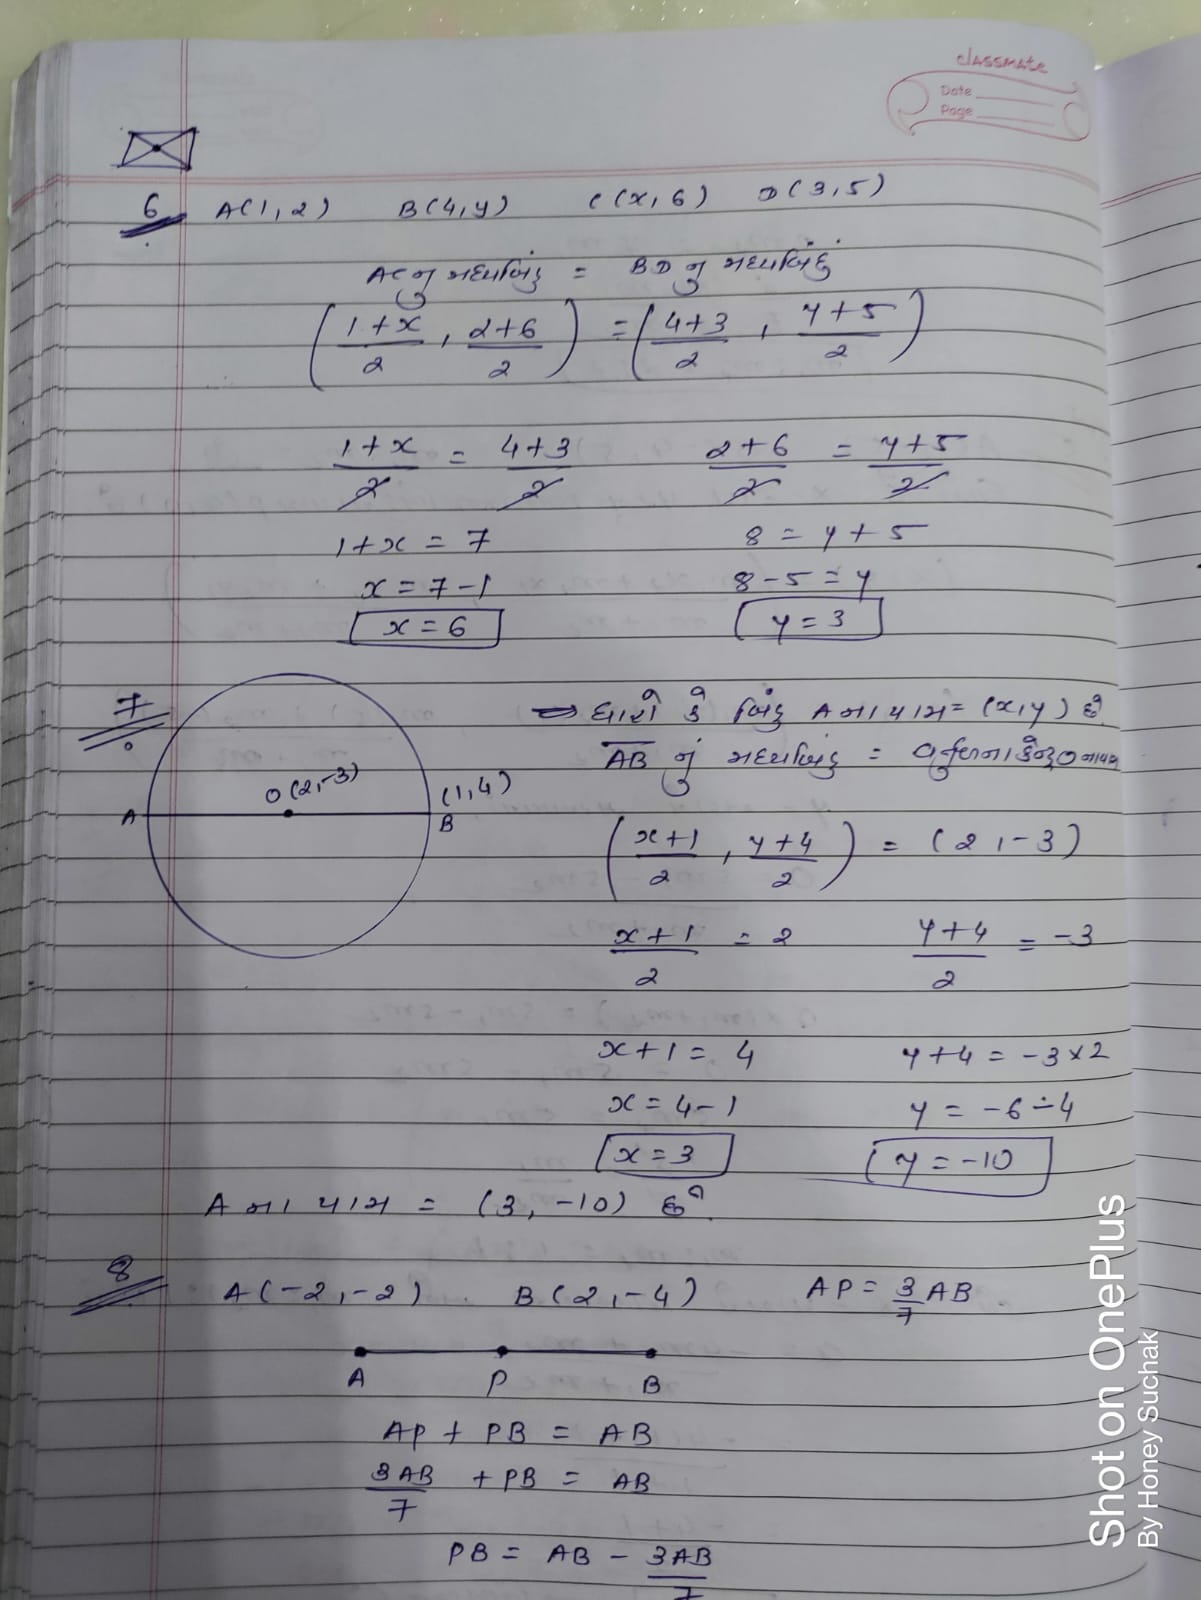 classmate
Date
Page
6 A(1,2) B(4,y) C(x,6) D(3,5)
ACનું મધ્યબિંદુ = BDનું મધ્યબિંદુ
((1+x)/2 , (2+6)/2) = ((4+3)/2 , (y+5)/2)
(1+x)/2 = (4+3)/2 (2+6)/2 = (y+5)/2
1+x = 7 8 = y+5
x = 7-1 8-5 = y
x = 6 y = 3
7 ધારો કે બિંદુ A ના યામ = (x,y) છે
AB નું મધ્યબિંદુ = વર્તુળના કેન્દ્ર O ના યામ
O(2,-3) (1,4)
A B
((x+1)/2 , (y+4)/2) = (2,-3)
(x+1)/2 = 2 (y+4)/2 = -3
x+1 = 4 y+4 = -3×2
x = 4-1 y = -6-4
x = 3 y = -10
A ના યામ = (3,-10) છે.
8 A(-2,-2) B(2,-4) AP = 3/7 AB
A P B
AP + PB = AB
3AB/7 + PB = AB
PB = AB - 3AB/7
Shot on OnePlus
By Honey Suchak